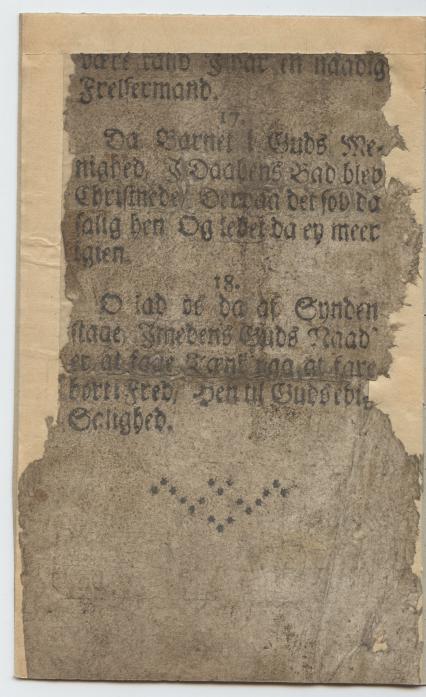 være rand I har en naadig
Frelsermand.
17.
Da Barnet i Guds Me-
nighed, I Daabens Bad blev
Christnede/ Derpaa det sov da
salig hen Og levet da ey meer
igien.
18.
O lad os da af Synden
staae, Imedens Guds Naad
er at faae Tænk paa at fare
bort i Fred/ Hen til Guds
Salighed.